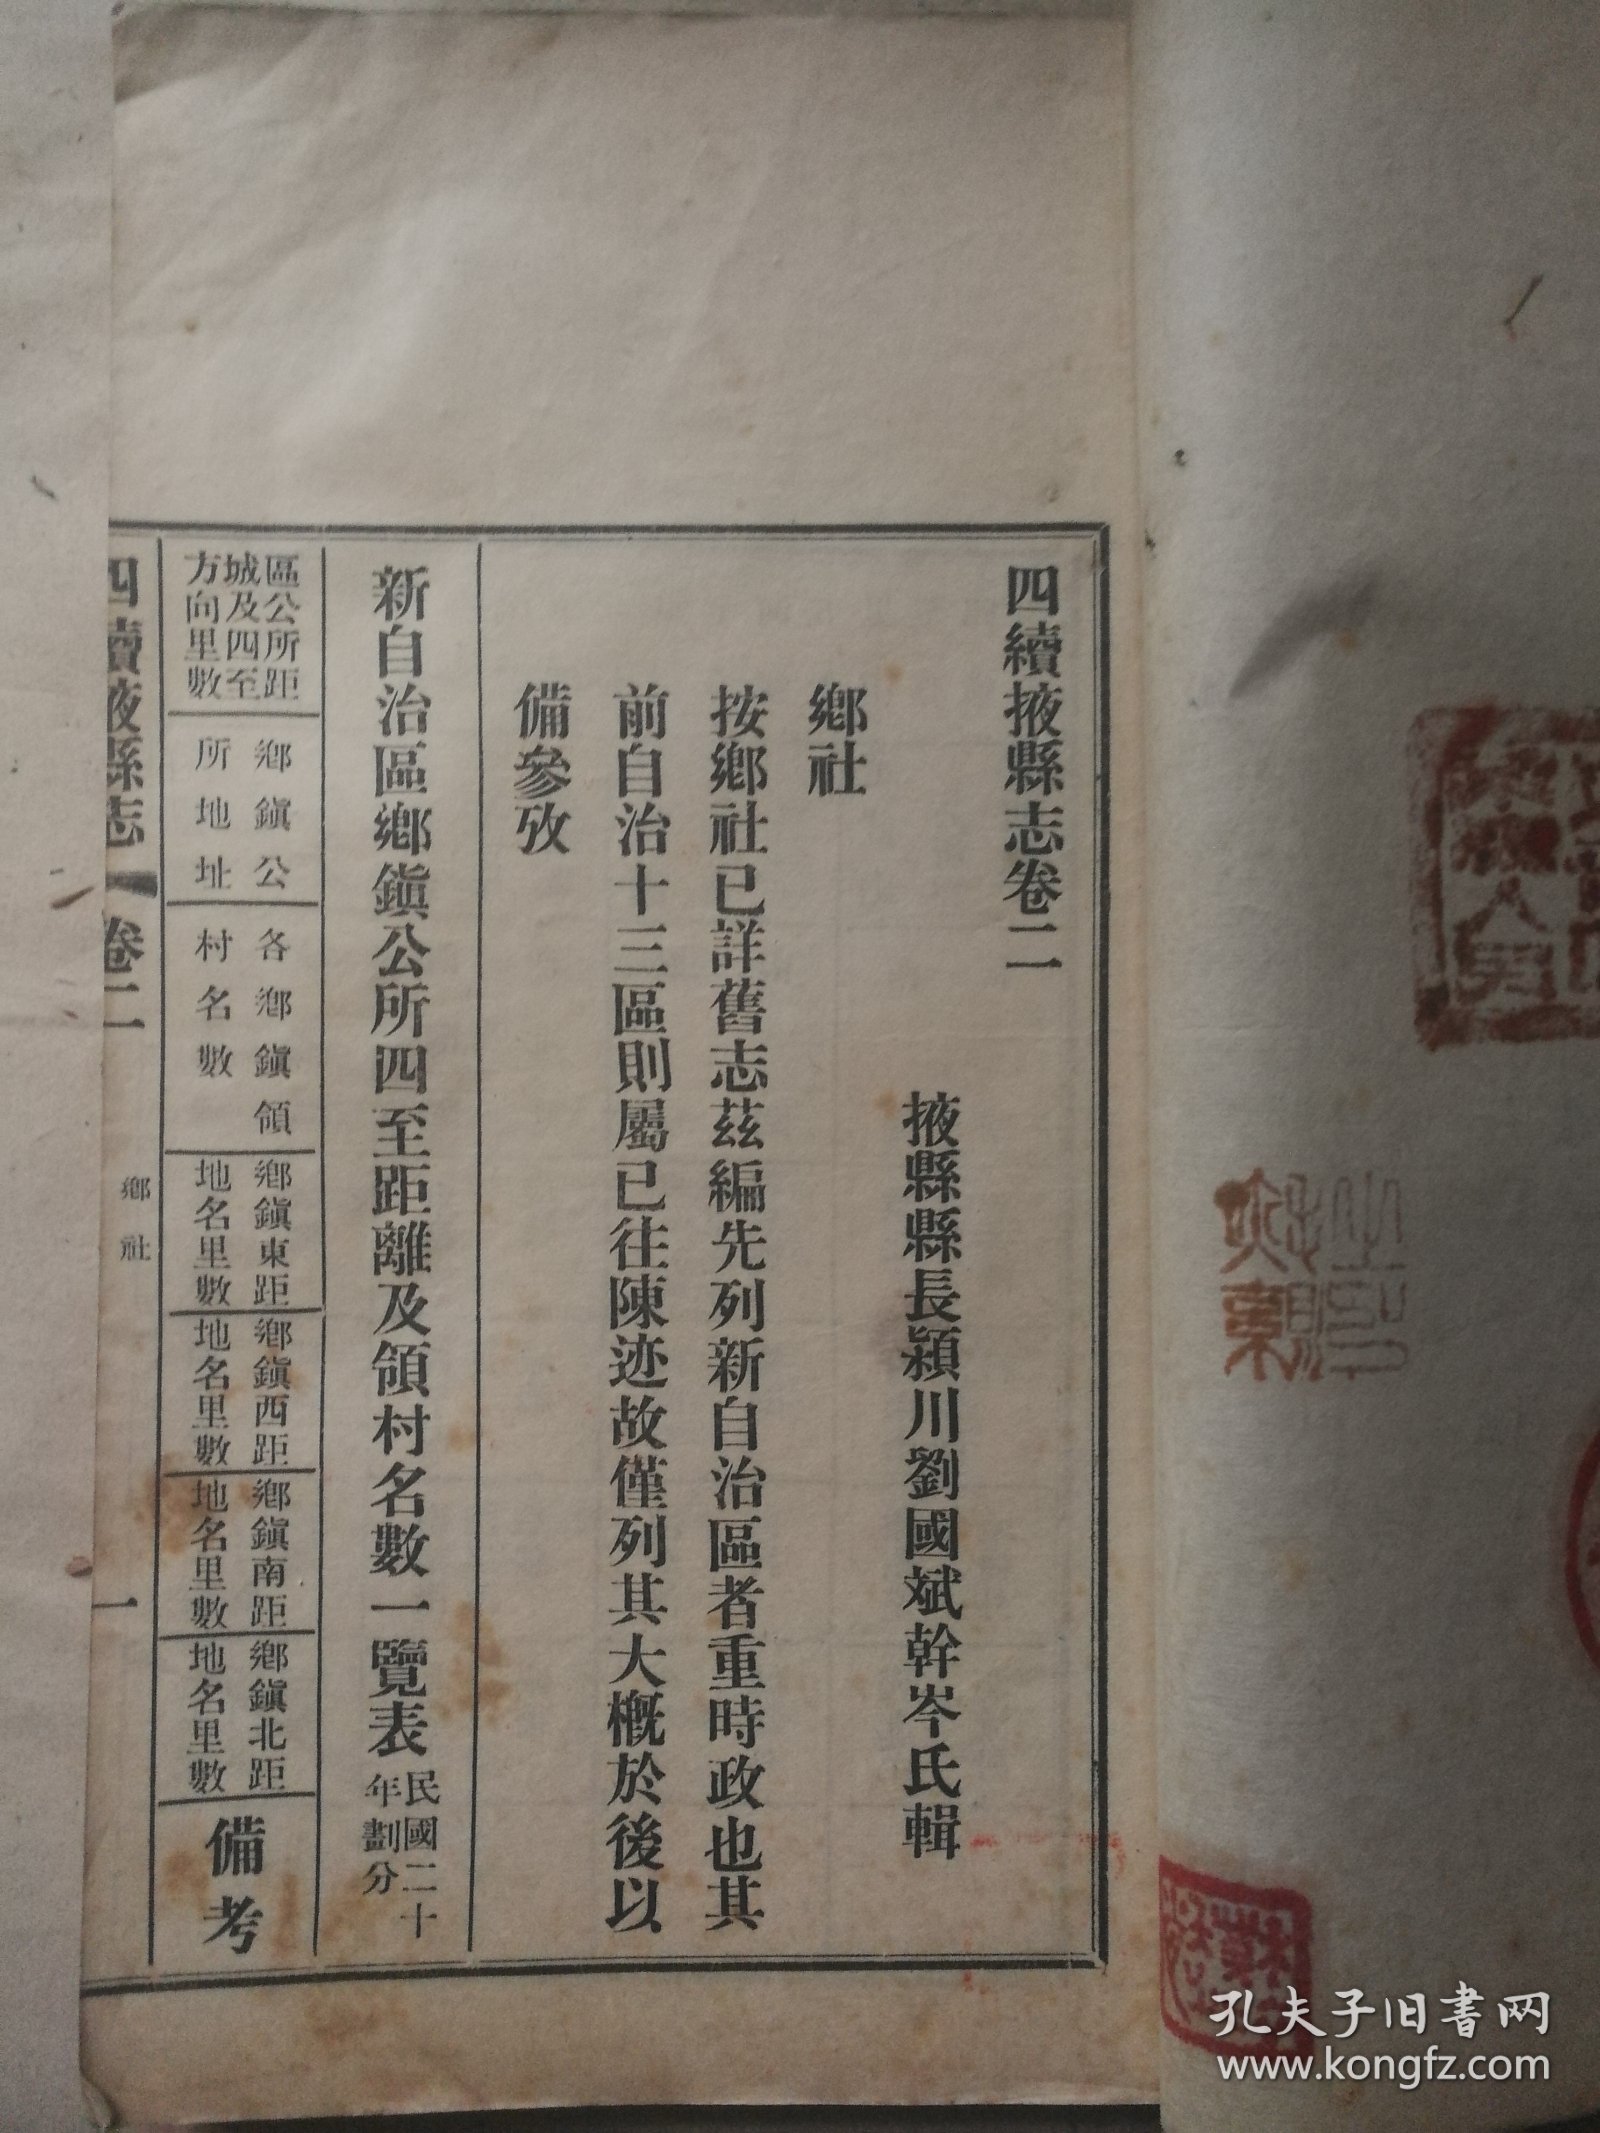 四續掖縣志卷二
掖縣縣長潁川劉國斌幹岑氏輯
鄉社
按鄉社已詳舊志茲編先列新自治區者重時政也其
前自治十三區則屬已往陳迹故僅列其大概於後以
備參攷
新自治區鄉鎮公所四至距離及領村名數一覽表 民國二十年劃分
區公所距城及四至方向里數
鄉鎮公所地址
各鄉鎮領村名數
鄉鎮東距地名里數
鄉鎮西距地名里數
鄉鎮南距地名里數
鄉鎮北距地名里數
備考
四續掖縣志 卷二 鄉社 一
孔夫子旧书网
www.kongfz.com